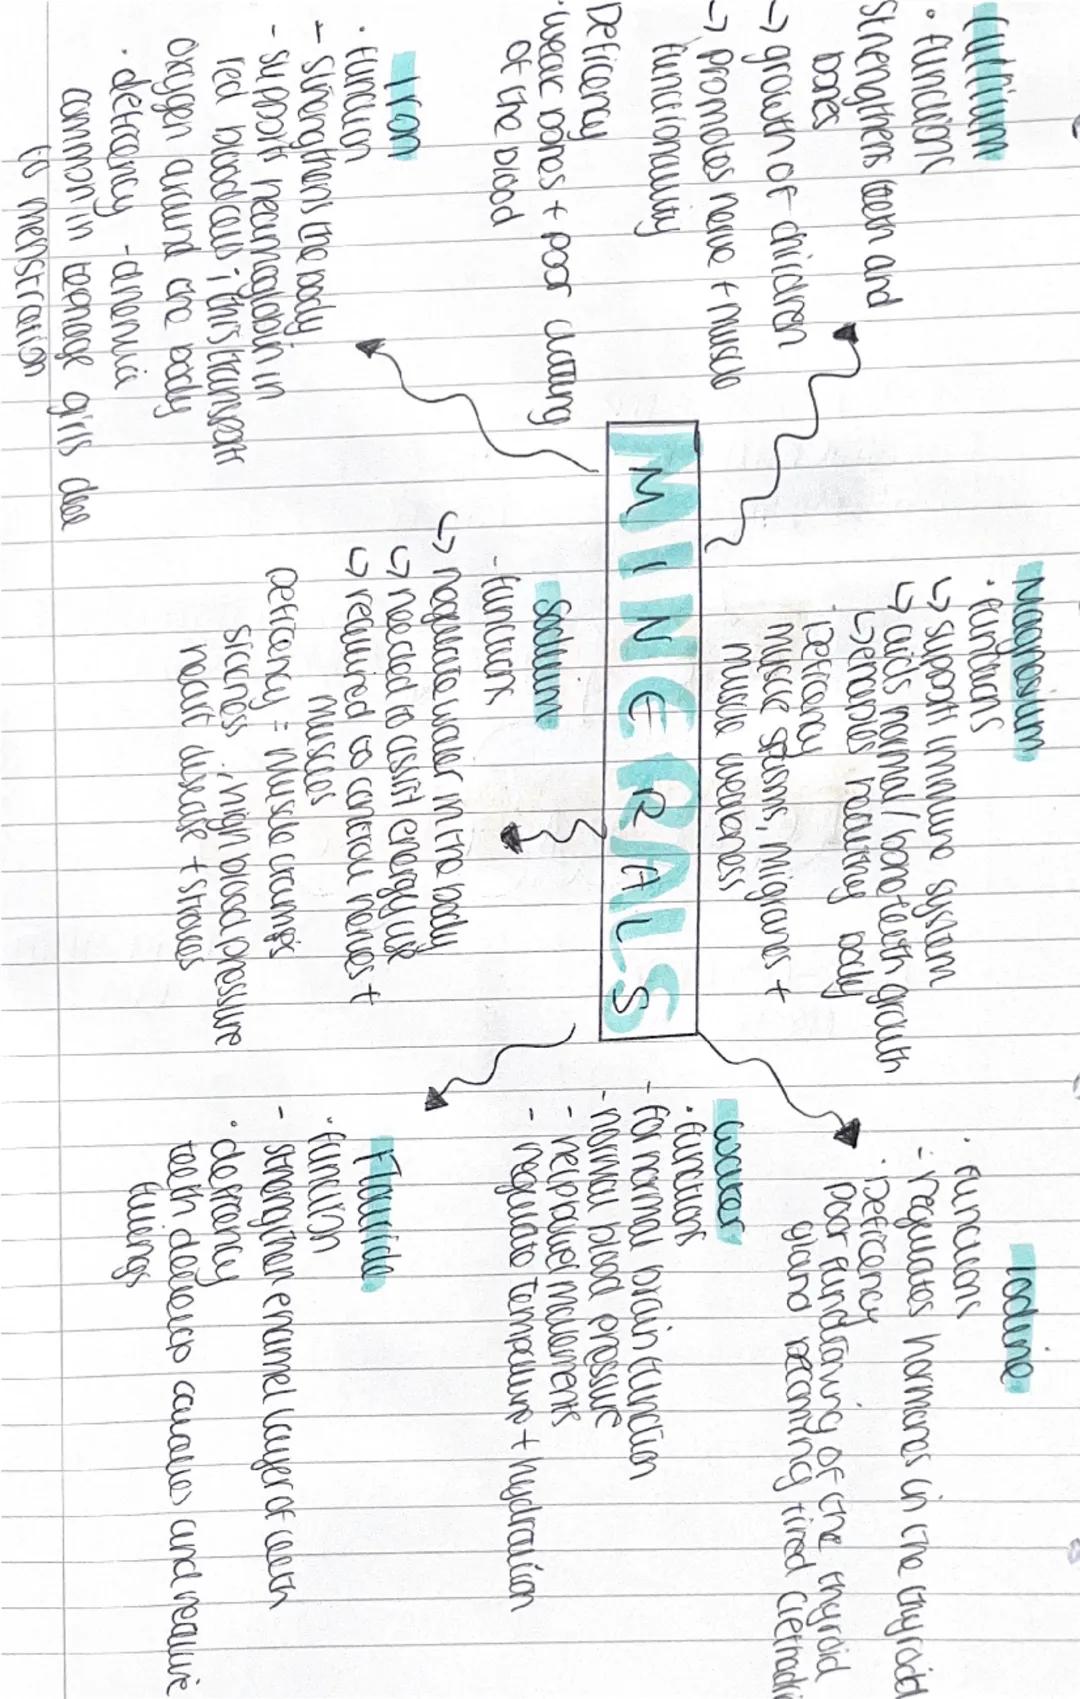 MINERALS
Calcium
· functions
Strengthens teeth and
bones
↳ growth of children
↳ promotes nerve + muscle
functionality
Deficency
· weak bones + poor clotting
of the blood
Iron
· function
- strengthens the body
- support heamoglobin in
red blood cells, this transport
oxygen around the body
· deficency - anemia
common in teenage girls due
to menstration
Magnesium
· functions
↳ support immune system
↳ aids normal / bone teeth growth
↳ enables healthy body
· Deficency
muscle spasms, migranes +
muscle weakness
Sodium
- functions
↳ regulate water in the body
↳ needed to assist energy use
↳ required to control nerves +
muscles
Deficency = muscle cramps
sickness, high blood pressure
heart disease + strokes
Iodine
· functions
- regulates hormones in the thyroid
· Deficency
poor functioning of the thyroid
gland becoming tired
Water
· functions
- for normal brain function
- normal blood pressure
- help bowel movements
- regulate tempeture + hydration
Flouride
· function
- strengthen enamel layer of teeth
· deficency
teeth develop cavaties and require
fillings